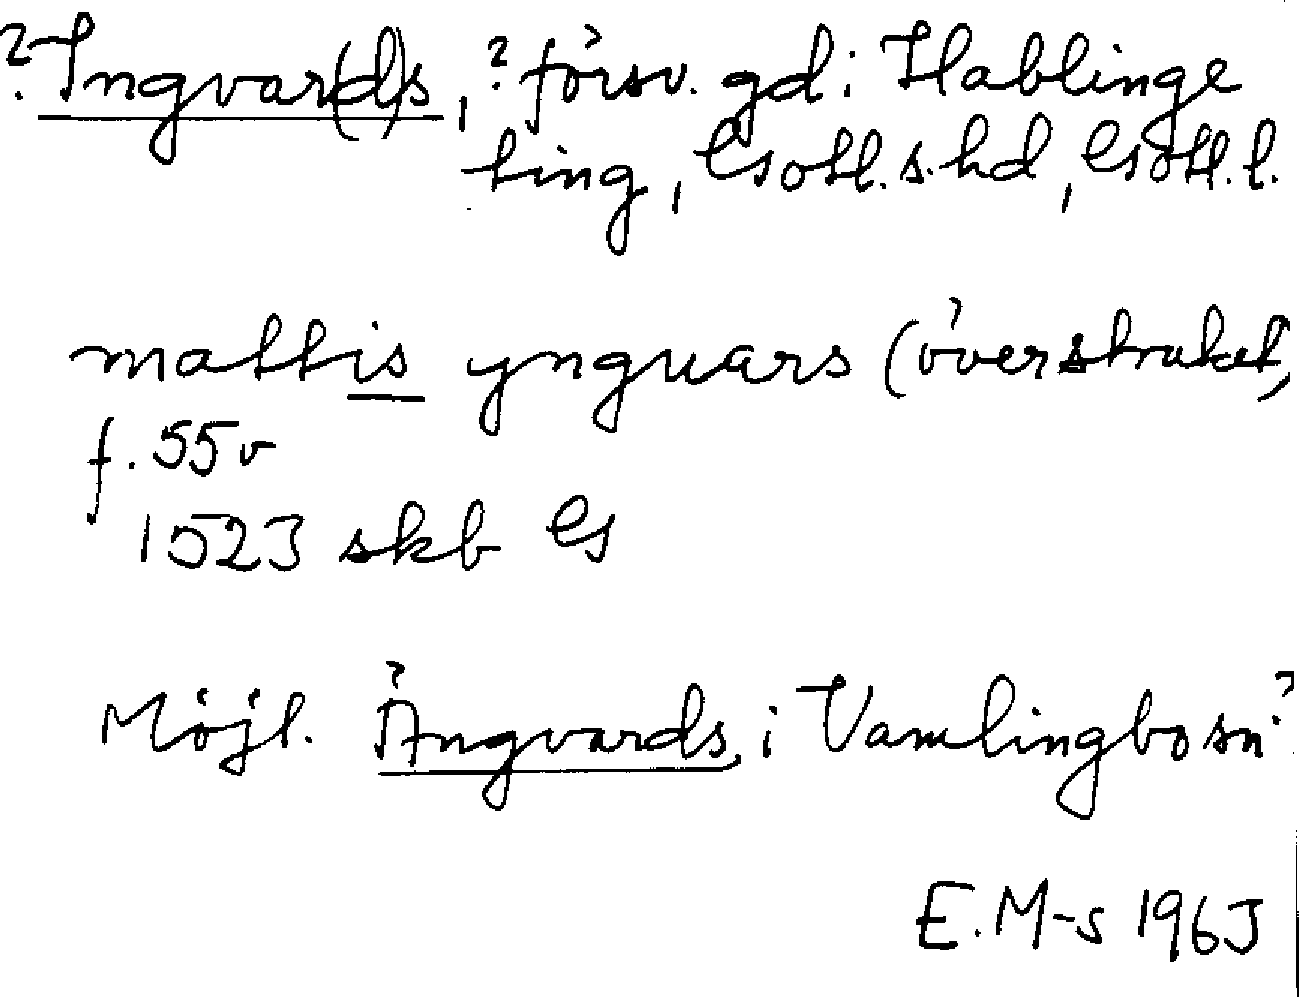 ?Ingvar(d)s, ?försv. gd i Hablinge
ting, Gotl. s. hd, Gotl. l.
mattis ynguars (överstruket,
f. 55v
1523 skb G
Möjl. Ängvards i Vamlingbo sn?
E. M-s 1963